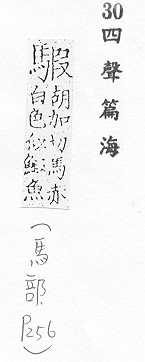 30 四聲篇海
騢 胡加切馬赤
白色似鰕魚
(馬部 P256)